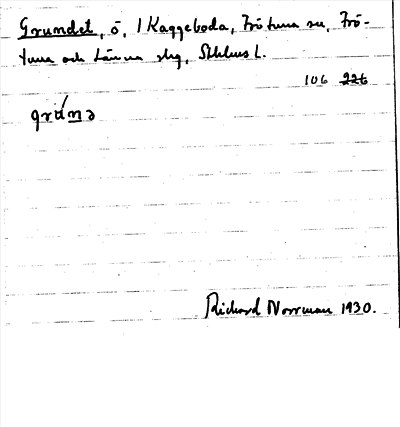 Grundet, ö, 1 Kaggeboda, Frötuna sn, Frö-
tuna och Länna skg, Sthlms l.
106 226
grúnə
Richard Norrman 1930.